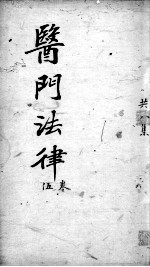 共八集
醫門法律
卷
五